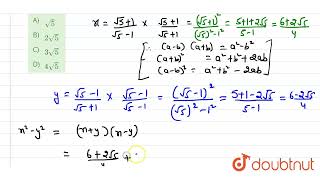 A) √5
B) 2√5
C) 3√5
D) 4√5
x = √5+1 / √5-1 × √5+1 / √5+1 = (√5+1)² / (√5)²-1² = 5+1+2√5 / 5-1 = 6+2√5 / 4
[∵ (a-b)(a+b) = a²-b²
(a+b)² = a²+b²+2ab
(a-b)² = a²+b²-2ab]
y = √5-1 / √5+1 × √5-1 / √5-1 = (√5-1)² / (√5)²-1² = 5+1-2√5 / 5-1 = 6-2√5 / 4
x²-y² = (x+y)(x-y)
= 6+2√5 / 4 +
doubtnut